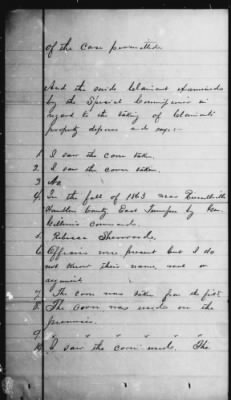 of the case permitted
And the said Claimant examined
by the Special Commissioner in
regard to the taking of Claimants
property deposes and says:-
1. I saw the corn taken.
2. I saw the corn taken.
3 No.
4. In the fall of 1863 near Russellville
Hamblen County East Tennessee by Gen
command.
5. Rebecca
6. Officers were present but I do
not know their names, rank or
regiment
7. The corn was taken from the field
8. The corn was used on the
premises.
9. " " " " "
10. I saw the corn used. The